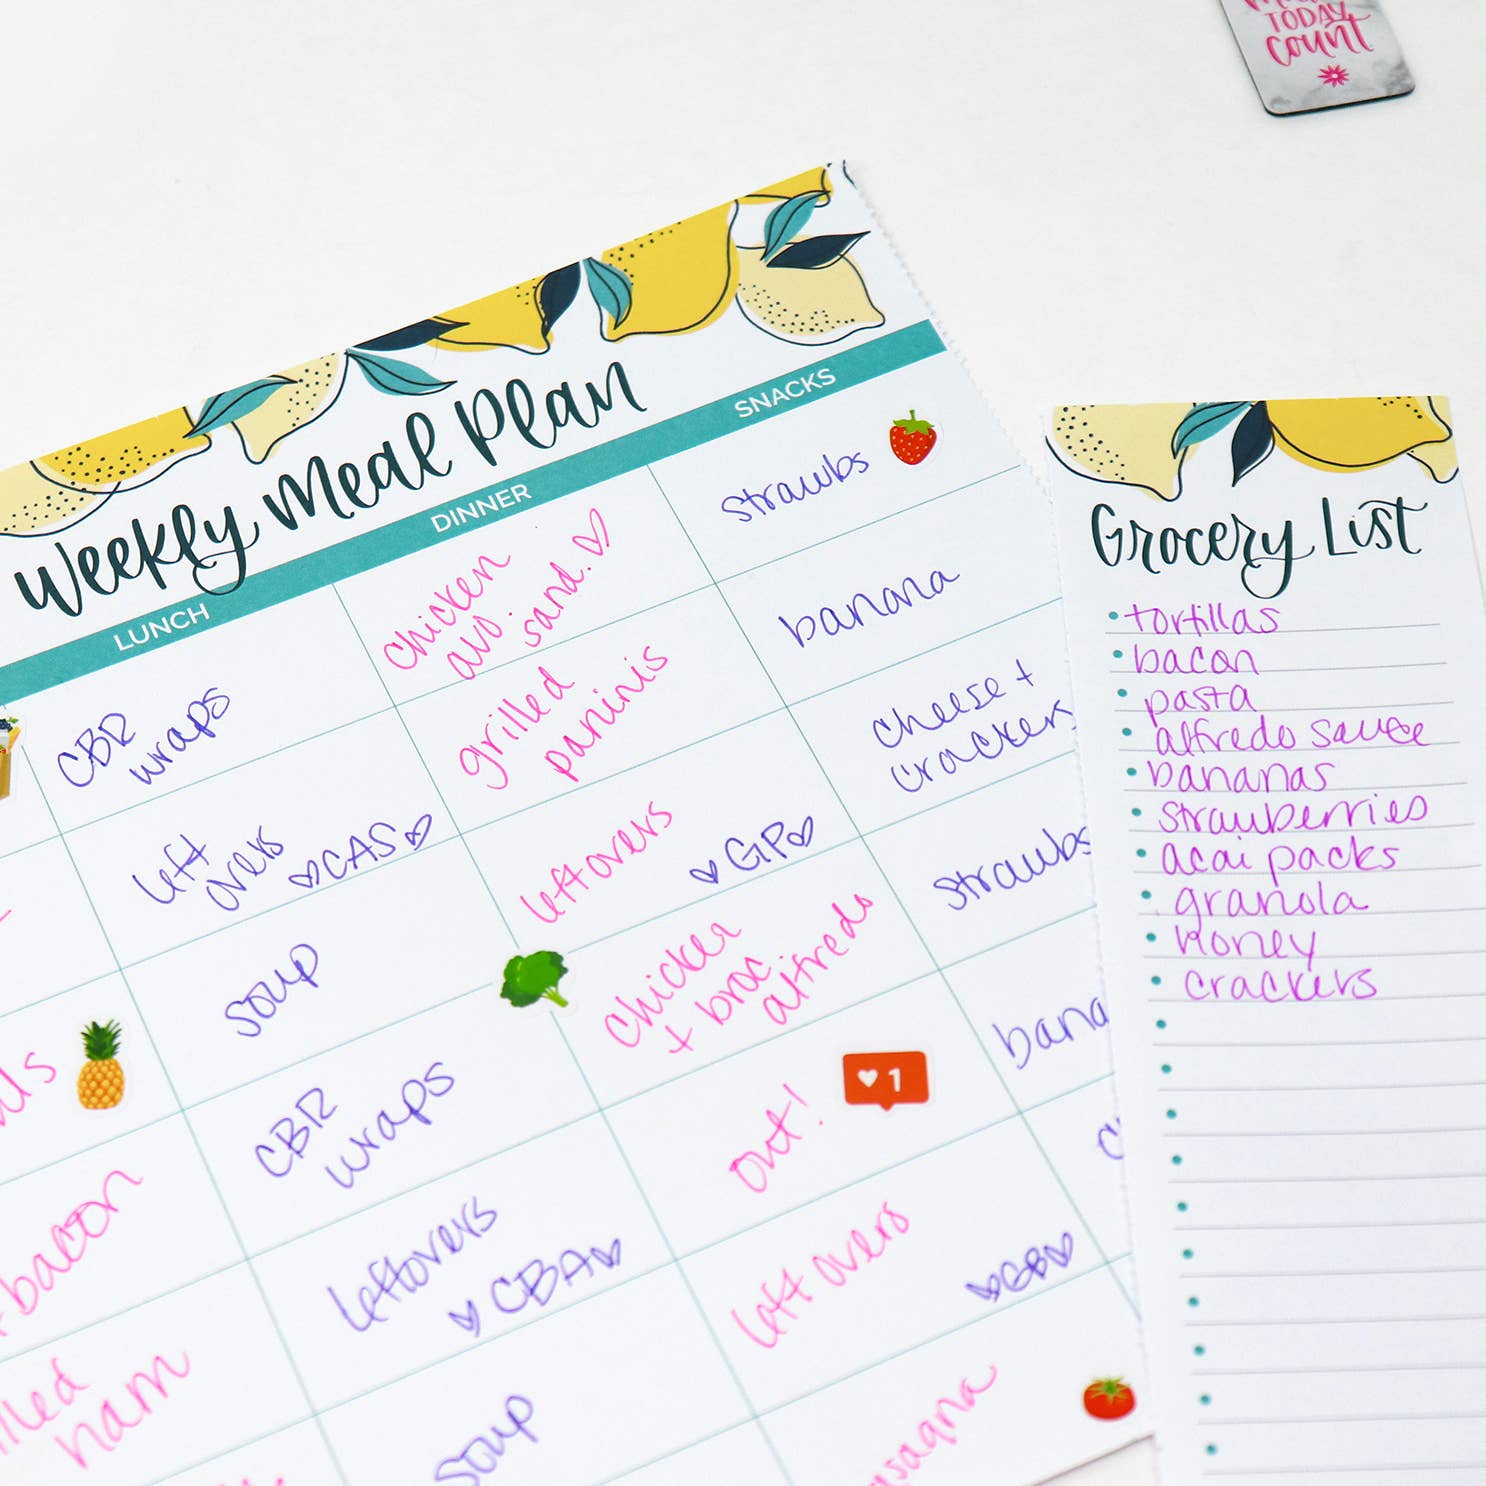 TODAY
count
Weekly Meal Plan
LUNCH
DINNER
SNACKS
CBR
wraps
chicken
avo
sand.
strawbs
left
overs
CAS
grilled
paninis
banana
soup
leftovers
GP
cheese +
crackers
CBR
wraps
chicken
+ broc
alfredo
strawbs
bacon
leftovers
CBA
out!
1
ham
soup
left overs
GB
Grocery List
tortillas
bacon
pasta
alfredo sauce
bananas
strawberries
acai packs
granola
honey
crackers